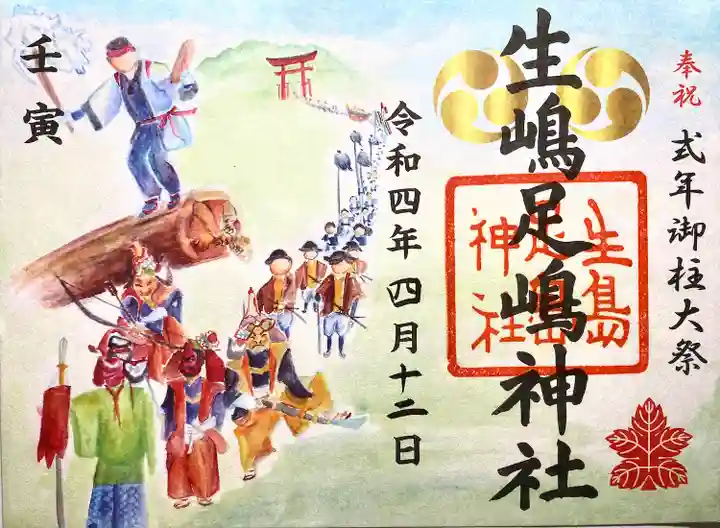 奉祝 式年御柱大祭
生嶋足嶋神社
生島
足島
神社
令和四年四月十二日
壬寅